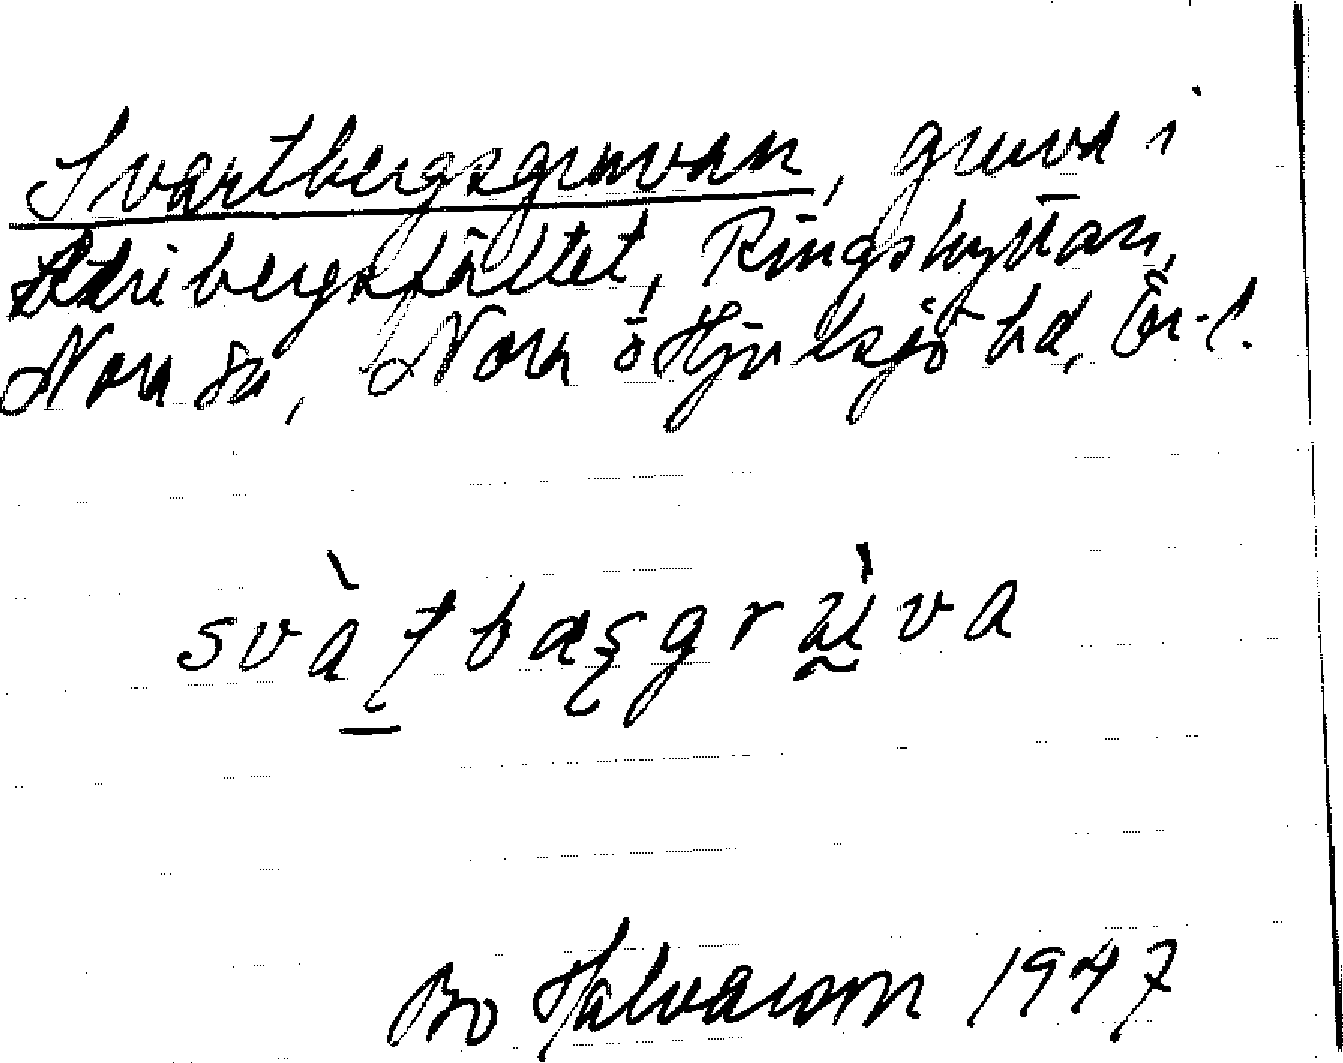 Svartbergsgruvan, gruva i
Åsribergsfältet, Ringshyttan,
Nora sn, Nora o Hjulsjö hd, Ör. l.
svàʈbæʂgrùva
Bo Halvarson 1947